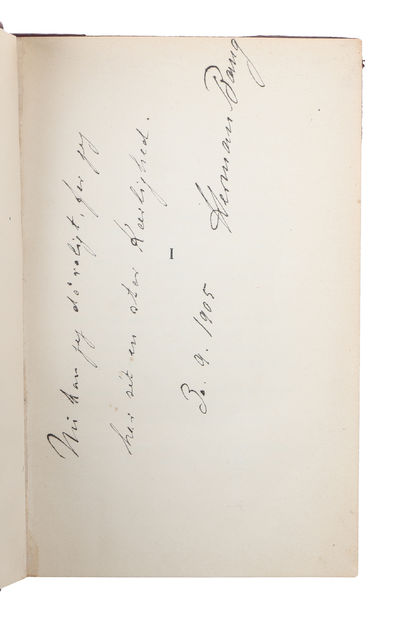 Nu kan jeg dö roligt, for jeg
har set en stor Kærlighed.
I
30. 9. 1905
Herman Bang